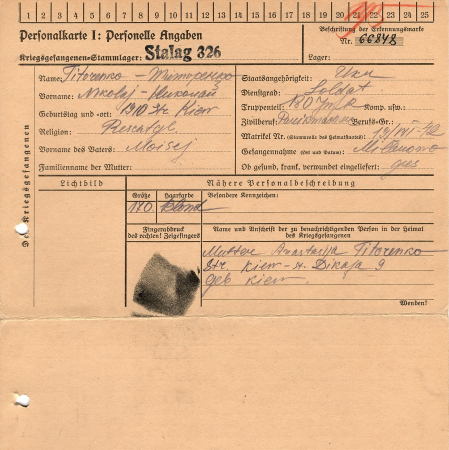 1 2 3 4 5 6 7 8 9 10 11 12 13 14 15 16 17 18 19 20 21 22 23 24 25
Personalkarte I: Personelle Angaben
Kriegsgefangenen-Stammlager: Stalag 326
Beschriftung der Erkennungsmarke
Nr. 66848
Lager:
Des Kriegsgefangenen
Name: Titorenko - Титоренко
Vorname: Nikolaj - Николай
Geburtstag und -ort: 1910 Kiew
Religion:
Vorname des Vaters: Moisej
Familienname der Mutter:
Staatsangehörigkeit: Ukr
Dienstgrad: Soldat
Truppenteil: 180 Komp. usw.:
Zivilberuf: Berufs-Gr.:
Matrikel Nr. (Stammrolle des Heimatstaates):
Gefangennahme (Ort und Datum):
Ob gesund, krank, verwundet eingeliefert: ges
Lichtbild
Nähere Personalbeschreibung
Größe Haarfarbe Besondere Kennzeichen:
170 blond
Fingerabdruck
des rechten! Zeigefingers
Name und Anschrift der zu benachrichtigenden Person in der Heimat
des Kriegsgefangenen
Mutter Anastasija Titorenko
Str. Kiew - st. Dikaja 9
geb Kiew
Wenden!